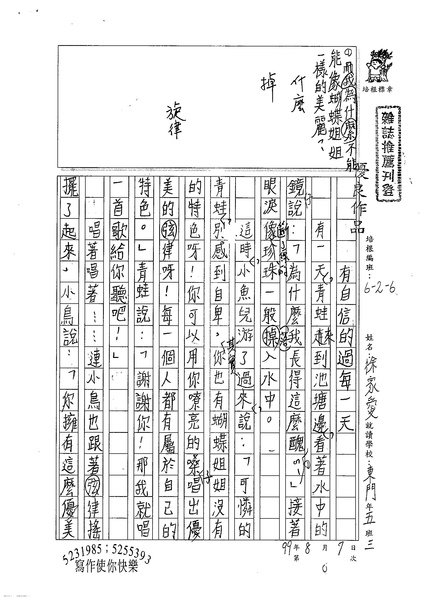 培根標章
雜誌推薦刊登
優良作品
培根編班：6-2-6
姓名 徐家 就讀學校：東門 年五 班三
99年8月9日
第 次
有自信的過每一天
有一天，青蛙來到池塘邊看著水中的
鏡說：「為什麼我長得這麼醜？」接著
眼淚像斷線的珍珠一般掉落入水中。
這時，小魚兒游了過來說：「可憐的
青蛙，別感到自卑，其實你也有蝴蝶姐姐沒有
的特色呀！你可以用你嘹亮的嗓唱出優
美的弦律呀！每一個人都有屬於自己的
特色。」青蛙說：「謝謝你！那我就唱
一首歌給你聽吧！」
唱著唱著……連小鳥也跟著弦律搖
擺了起來，小鳥說：「你擁有這麼優美
①而我為什麼不能
能像蝴蝶姐姐
一樣的美麗？
什麼
掉
旋律
5231985；5255393
寫作使你快樂